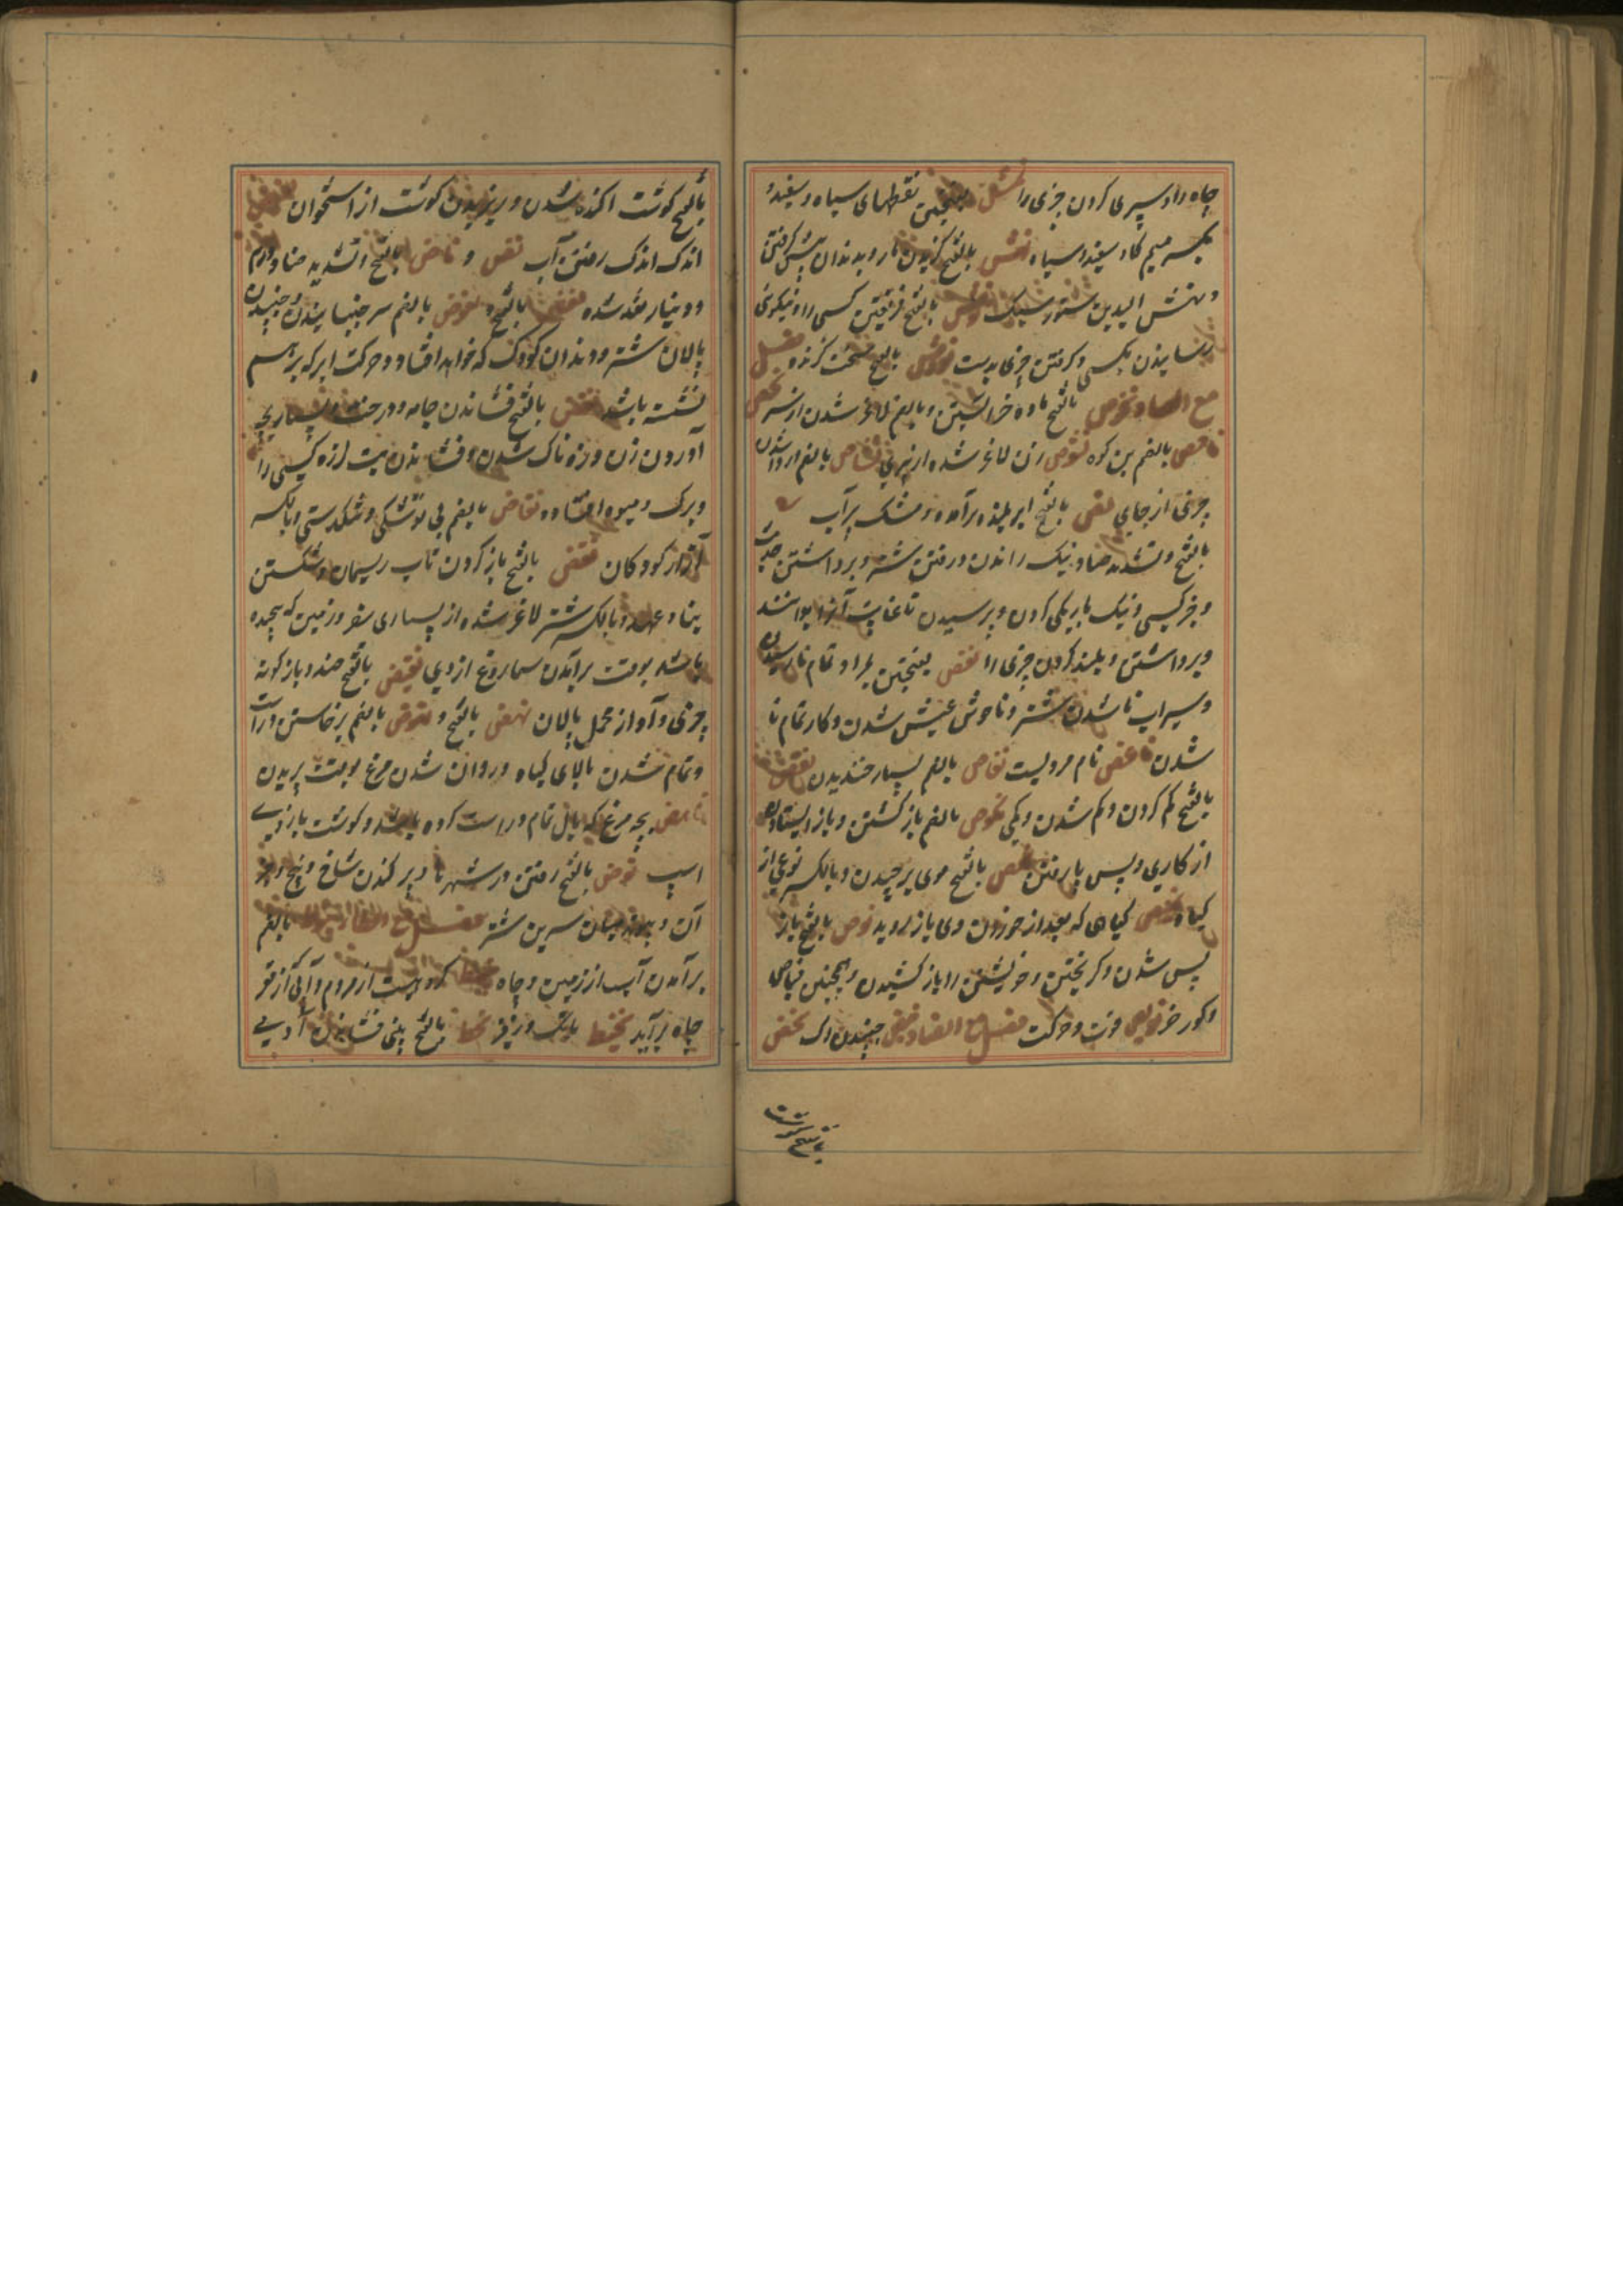 چاه را و سپری کردن چیزی را نمش بفتحتین نقطهای سیاه و سفید و
بکسر میم کاو سفید و سیاه نهش بالفتح کزیدن مار و بدندان پیش کرفتن
و نهش الیدین ستور سبک نوش بالفتح فریفتن کسی را و نیکوئی
رسانیدن بکسی و کرفتن چیزی بدست نووش بالفتح سخت کزنده فصل
مع الصاد نحوص بالفتح ماده خر آبستن و بالضم لاغر شدن از نحص
بالضم بن کوه نشوص زن لاغر شده از پیری نشاص بالضم
چیزی از جای نشص بالفتح ابر بلند برآمده و مشک پرآب
بالفتح و تشدید صاد نیک راندن در رفتن شتر و برداشتن
و خبر کسی و نیک باریکی کردن و پرسیدن تا غایت آنرا بدانند
و برداشتن و بلند کردن چیزی را نغص بفتحتین مراد تمام نارسیدن
و سیراب ناشدن شتر و ناخوش عیش شدن و کار تمام نا
شدن ناعص نام مردیست نفاص بالضم بسیار خندیدن نقص
بالفتح کم کردن و کم شدن و کمی نکوص بالضم باز کشتن و باز ایستادن
از کاری و پس پا رفتن نمص بالفتح موی برچیدن و بالکسر نوعی از
کیاه نمیص کیاهی که بعد از خوردن وی باز روید نوص بالفتح باز
پس شدن و کریختن و خویشتن را باز کشیدن و همچنین مناص
و کور خر نویص قوت و حرکت فصل مع الضاد نبض جنبیدن رک نحض
بالفتح گوشت
بالفتح کوشت اکنده شدن و ریزیدن کوشت از استخوان
اندک اندک رفتن آب نض و ناض بالفتح و تشدید ضاد درم
و دینار نقد شده نغض بالفتح و نغوض بالضم سر جنبانیدن و جنبیدن
پالان شتر و دندان کودک که خواهد افتاد و حرکت ابر که بر هم
نشسته باشد نفض بالفتح فشاندن جامه و درخت و بسیار بچه
آوردن زن و زه ناک شدن و فشاندن تب لرزه کسی را
و برک و میوه افتاده نفاض بالضم بی توشکی و تنکدستی و بالکسر
ازار کودکان نقض بالفتح باز کردن تاب ریسمان و شکستن
بنا و عهد و بالکسر شتر لاغر شده از بسیاری سفر و زمین که بجهد
باشد بوقت برآمدن سماروغ از وی نقیض بالفتح ضد و باز کونه
چیزی و آواز محمل پالان نهض بالفتح و نهوض بالضم برخاستن
و تمام شدن بالای کیاه و روان شدن مرغ بوقت پریدن
ناهض بچه مرغ که بال تمام و راست کرده باشد و کوشت بازوی
اسپ نوض بالفتح رفتن در شهرها و بر کندن شاخ و میخ و جز
آن و پیوند میان سرین شتر فصل مع الطاء بالضم
برآمدن آب از زمین و چاه کروهیست از مردم و آبی که از قعر
چاه برآید نخیط بانک و زفیر نخط بالفتح بینی فشاندن آدمی